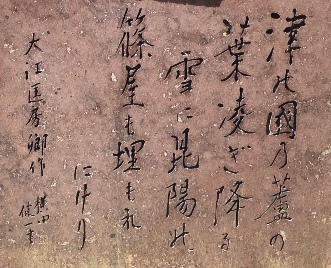 津の國乃蘆の
葉凌ぎ降る
雪に昆陽の
篠屋も埋もれ
にけり
大江匡房卿作